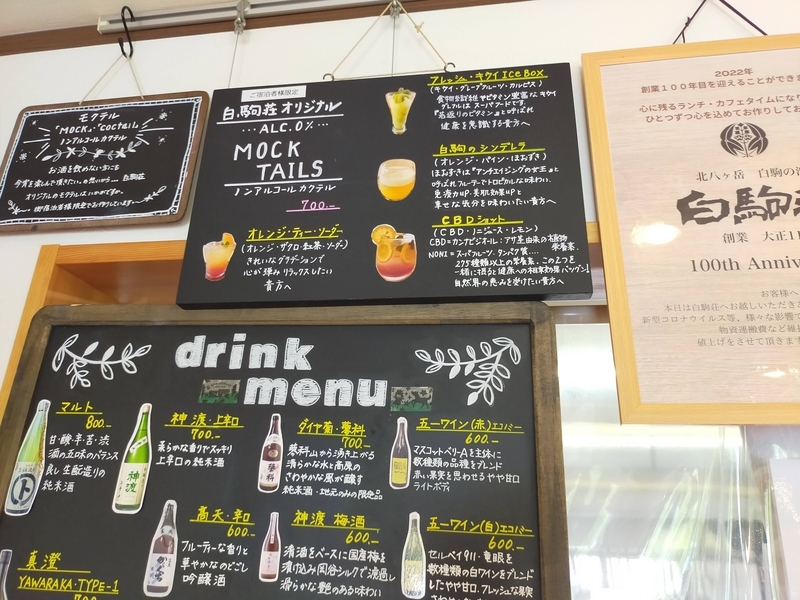 モクテル
「MOCK」+「COCTAIL」
ノンアルコールカクテル
お酒を飲めない方にも
今宵を楽しんで頂きたい。の思いから… 白駒荘
オリジナルのモクテルはいかがですか。
御宿泊者様限定でお作りしています
ご宿泊者様限定
白駒荘オリジナル
…ALC.0%…
MOCK
TAILS
ノンアルコールカクテル
700.-
オレンジ・ティー・ソーダ
(オレンジ・ザクロ・紅茶・ソーダ)
きれいなグラデーションで
心が弾み リラックスしたい
貴方へ
フレッシュ・キウイ ICE BOX
(キウイ・グレープフルーツ・カルピス)
健康を意識する貴方へ
白駒のシンデレラ
(オレンジ・パイン・ほおずき)
ほおずきは『アンチエイジングの女王』と
呼ばれフルーティでトロピカルな味わい。
免疫力UP・美肌効果UPと
幸せな気分を味わいたい貴方へ
CBDショット
(CBD・ノニジュース・レモン)
CBD=カンナビジオール:アサ茎由来の植物
栄養素.
NONI=スーパフルーツ・タンパク質…
275種類以上の栄養素. この2つを
一緒に摂ると健康への相乗効果バツグン!
自然界の恵みを受けたい貴方へ
2022年
創業100年目を迎えることができま
心に残るランチ・カフェタイムになり
ひとつずつ心を込めてお作りしてお
北八ヶ岳 白駒の池
白駒荘
創業 大正11
100th Anniv
お客様へ
本日は白駒荘へお越しいただき
新型コロナウイルス等、様々な影響で
物資運搬費など維
値上げをさせて頂きます
drink
menu
マルト
800.-
甘・酸・辛・苦・渋
酒の五味のバランス
良し 生酛造りの
純米酒
神渡・上辛口
700.-
柔らかな香りでスッキリ
上辛口の純米酒
神渡
ダイヤ菊・蓼科
700.-
蓼科山から湧き上がる
清らかな水と高原の
さわやかな風が醸す
純米酒・地元のみの限定品
蓼科
五一ワイン(赤)エコノミー
600.-
マスコットベリーAを主体に
数種類の品種をブレンド
赤い果実を思わせるやや甘口
ライトボディ
高天・辛口
600.-
フルーティーな香りと
華やかなのどごし
吟醸酒
神渡 梅酒
600.-
清酒をベースに国産梅を
漬け込み岡谷シルクで濾過し
滑らかな艶のある味わい
五一ワイン(白)エコノミー
600.-
セルベイ911・竜眼を
数種類の白ワインをブレンド
したやや甘口. フレッシュな果実
真澄
YAWARAKA・TYPE-1
700.-